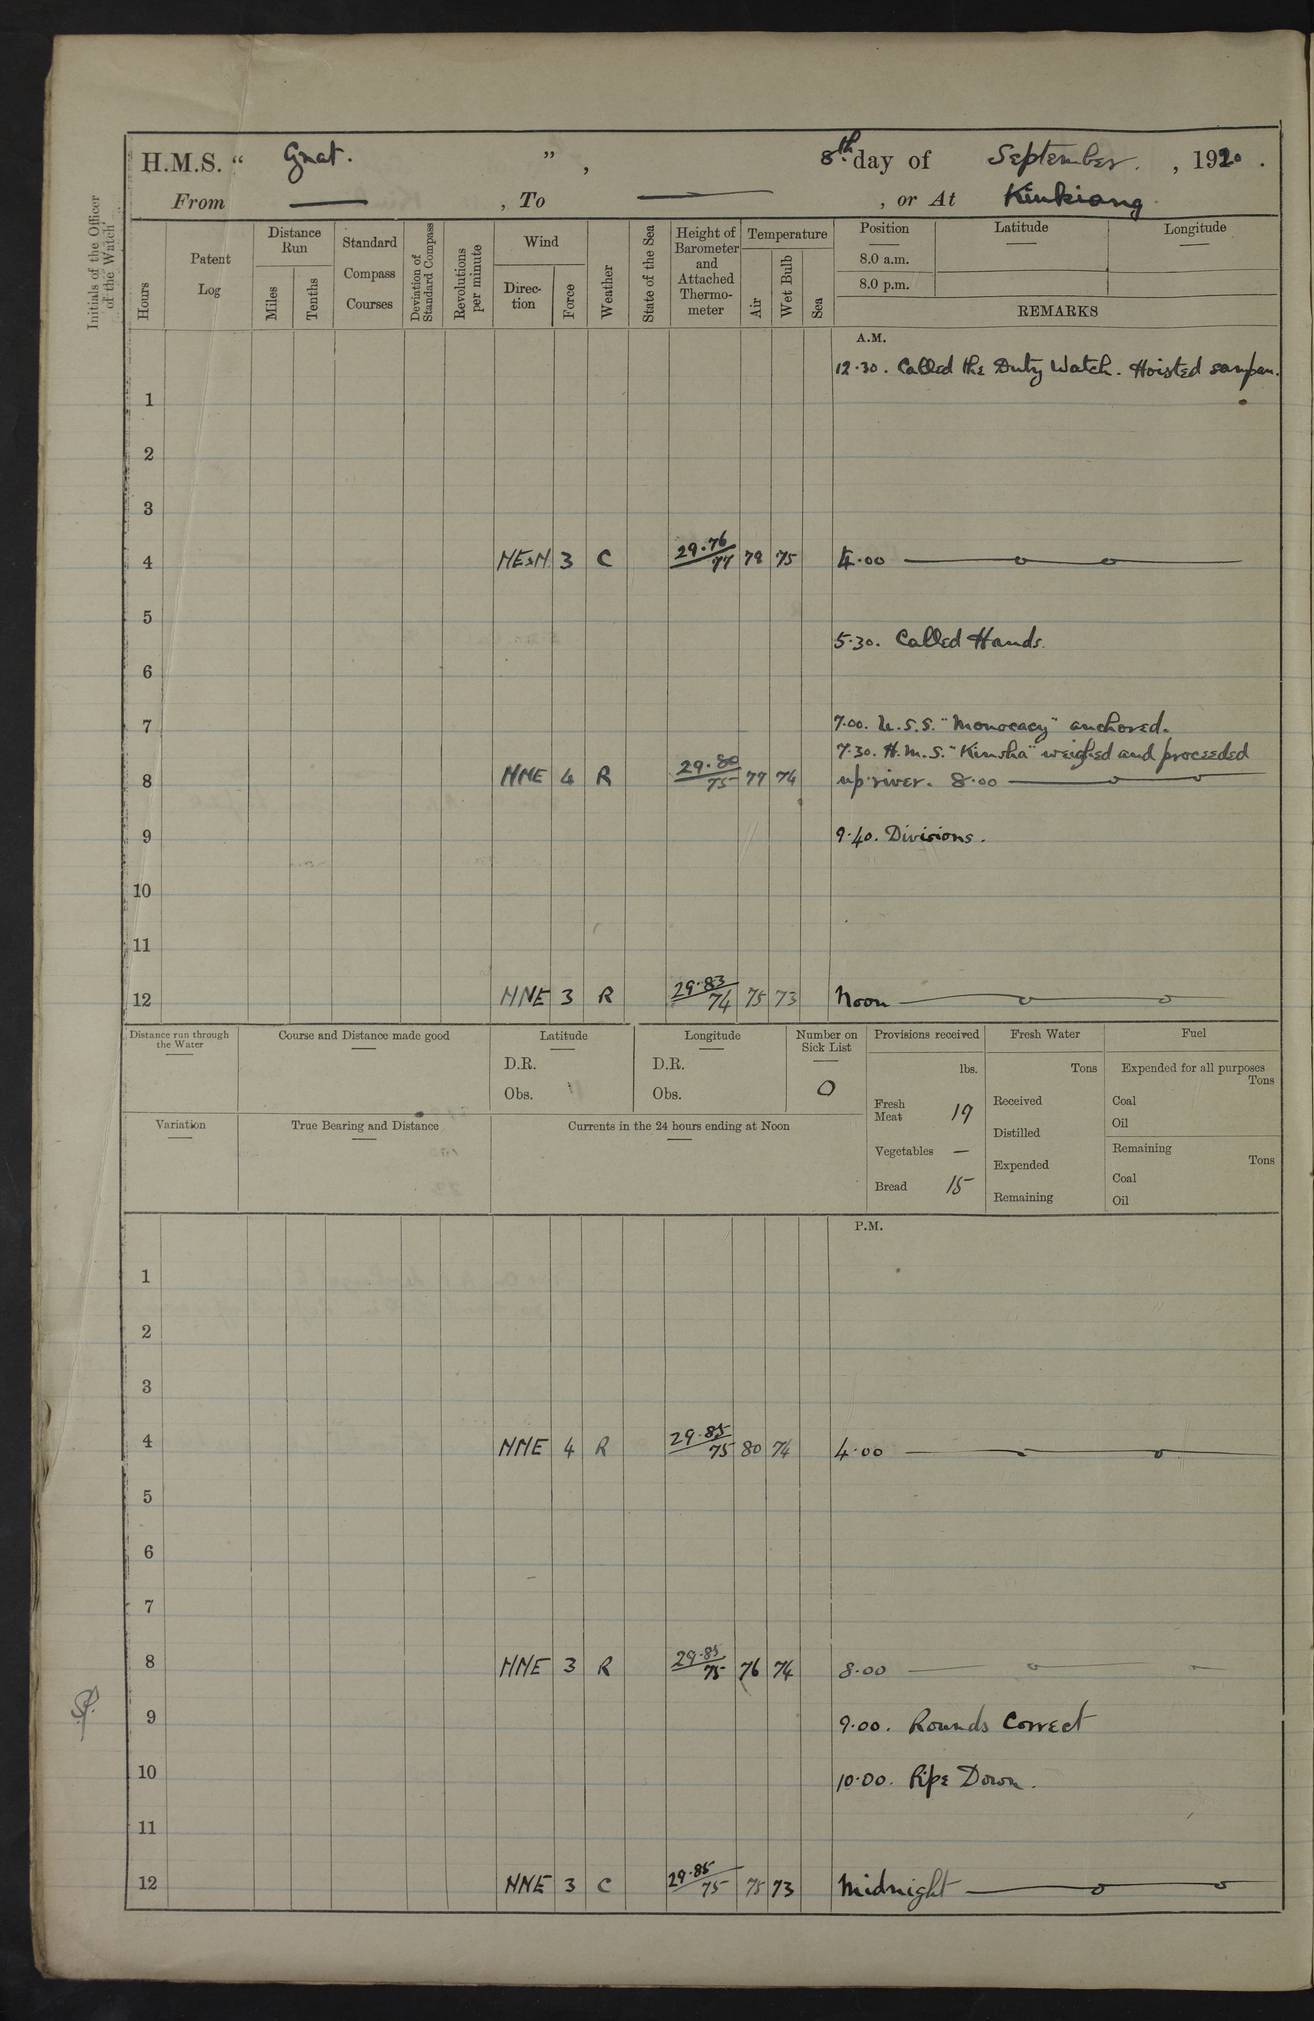 H.M.S. " Gnat. ", 8th day of September. , 1920 .
From — , To — , or At Kiukiang
Initials of the Officer of the Watch
Hours
Patent Log
Distance Run
Miles
Tenths
Standard Compass Courses
Deviation of Standard Compass
Revolutions per minute
Wind
Direc-tion
Force
Weather
State of the Sea
Height of Barometer and Attached Thermo-meter
Temperature
Air
Wet Bulb
Sea
Position
Latitude
Longitude
8.0 a.m.
8.0 p.m.
REMARKS
A.M.
12.30. Called the Duty Watch. Hoisted sampan.
1
2
3
4 NE×N 3 C 29.76/77 78 75 4.00 —
5
5.30. Called Hands.
6
7 7.00. U.S.S. "Monocacy" anchored.
7.30. H.M.S. "Kinsha" weighed and proceeded
8 NNE 4 R 29.80/75 77 74 up river. 8.00 —
9 9.40. Divisions.
10
11
12 NNE 3 R 29.83/74 75 73 Noon —
Distance run through the Water
Course and Distance made good
Latitude
D.R.
Obs.
Longitude
D.R.
Obs.
Number on Sick List
0
Provisions received
lbs.
Fresh Meat 19
Vegetables —
Bread 15
Fresh Water
Tons
Received
Distilled
Expended
Remaining
Fuel
Expended for all purposes
Tons
Coal
Oil
Remaining
Tons
Coal
Oil
Variation
True Bearing and Distance
Currents in the 24 hours ending at Noon
P.M.
1
2
3
4 NNE 4 R 29.85/75 80 74 4.00 —
5
6
7
8 NNE 3 R 29.85/75 76 74 8.00 —
9 9.00. Rounds Correct
10 10.00. Pipe Down.
11
12 NNE 3 C 29.85/75 75 73 Midnight —